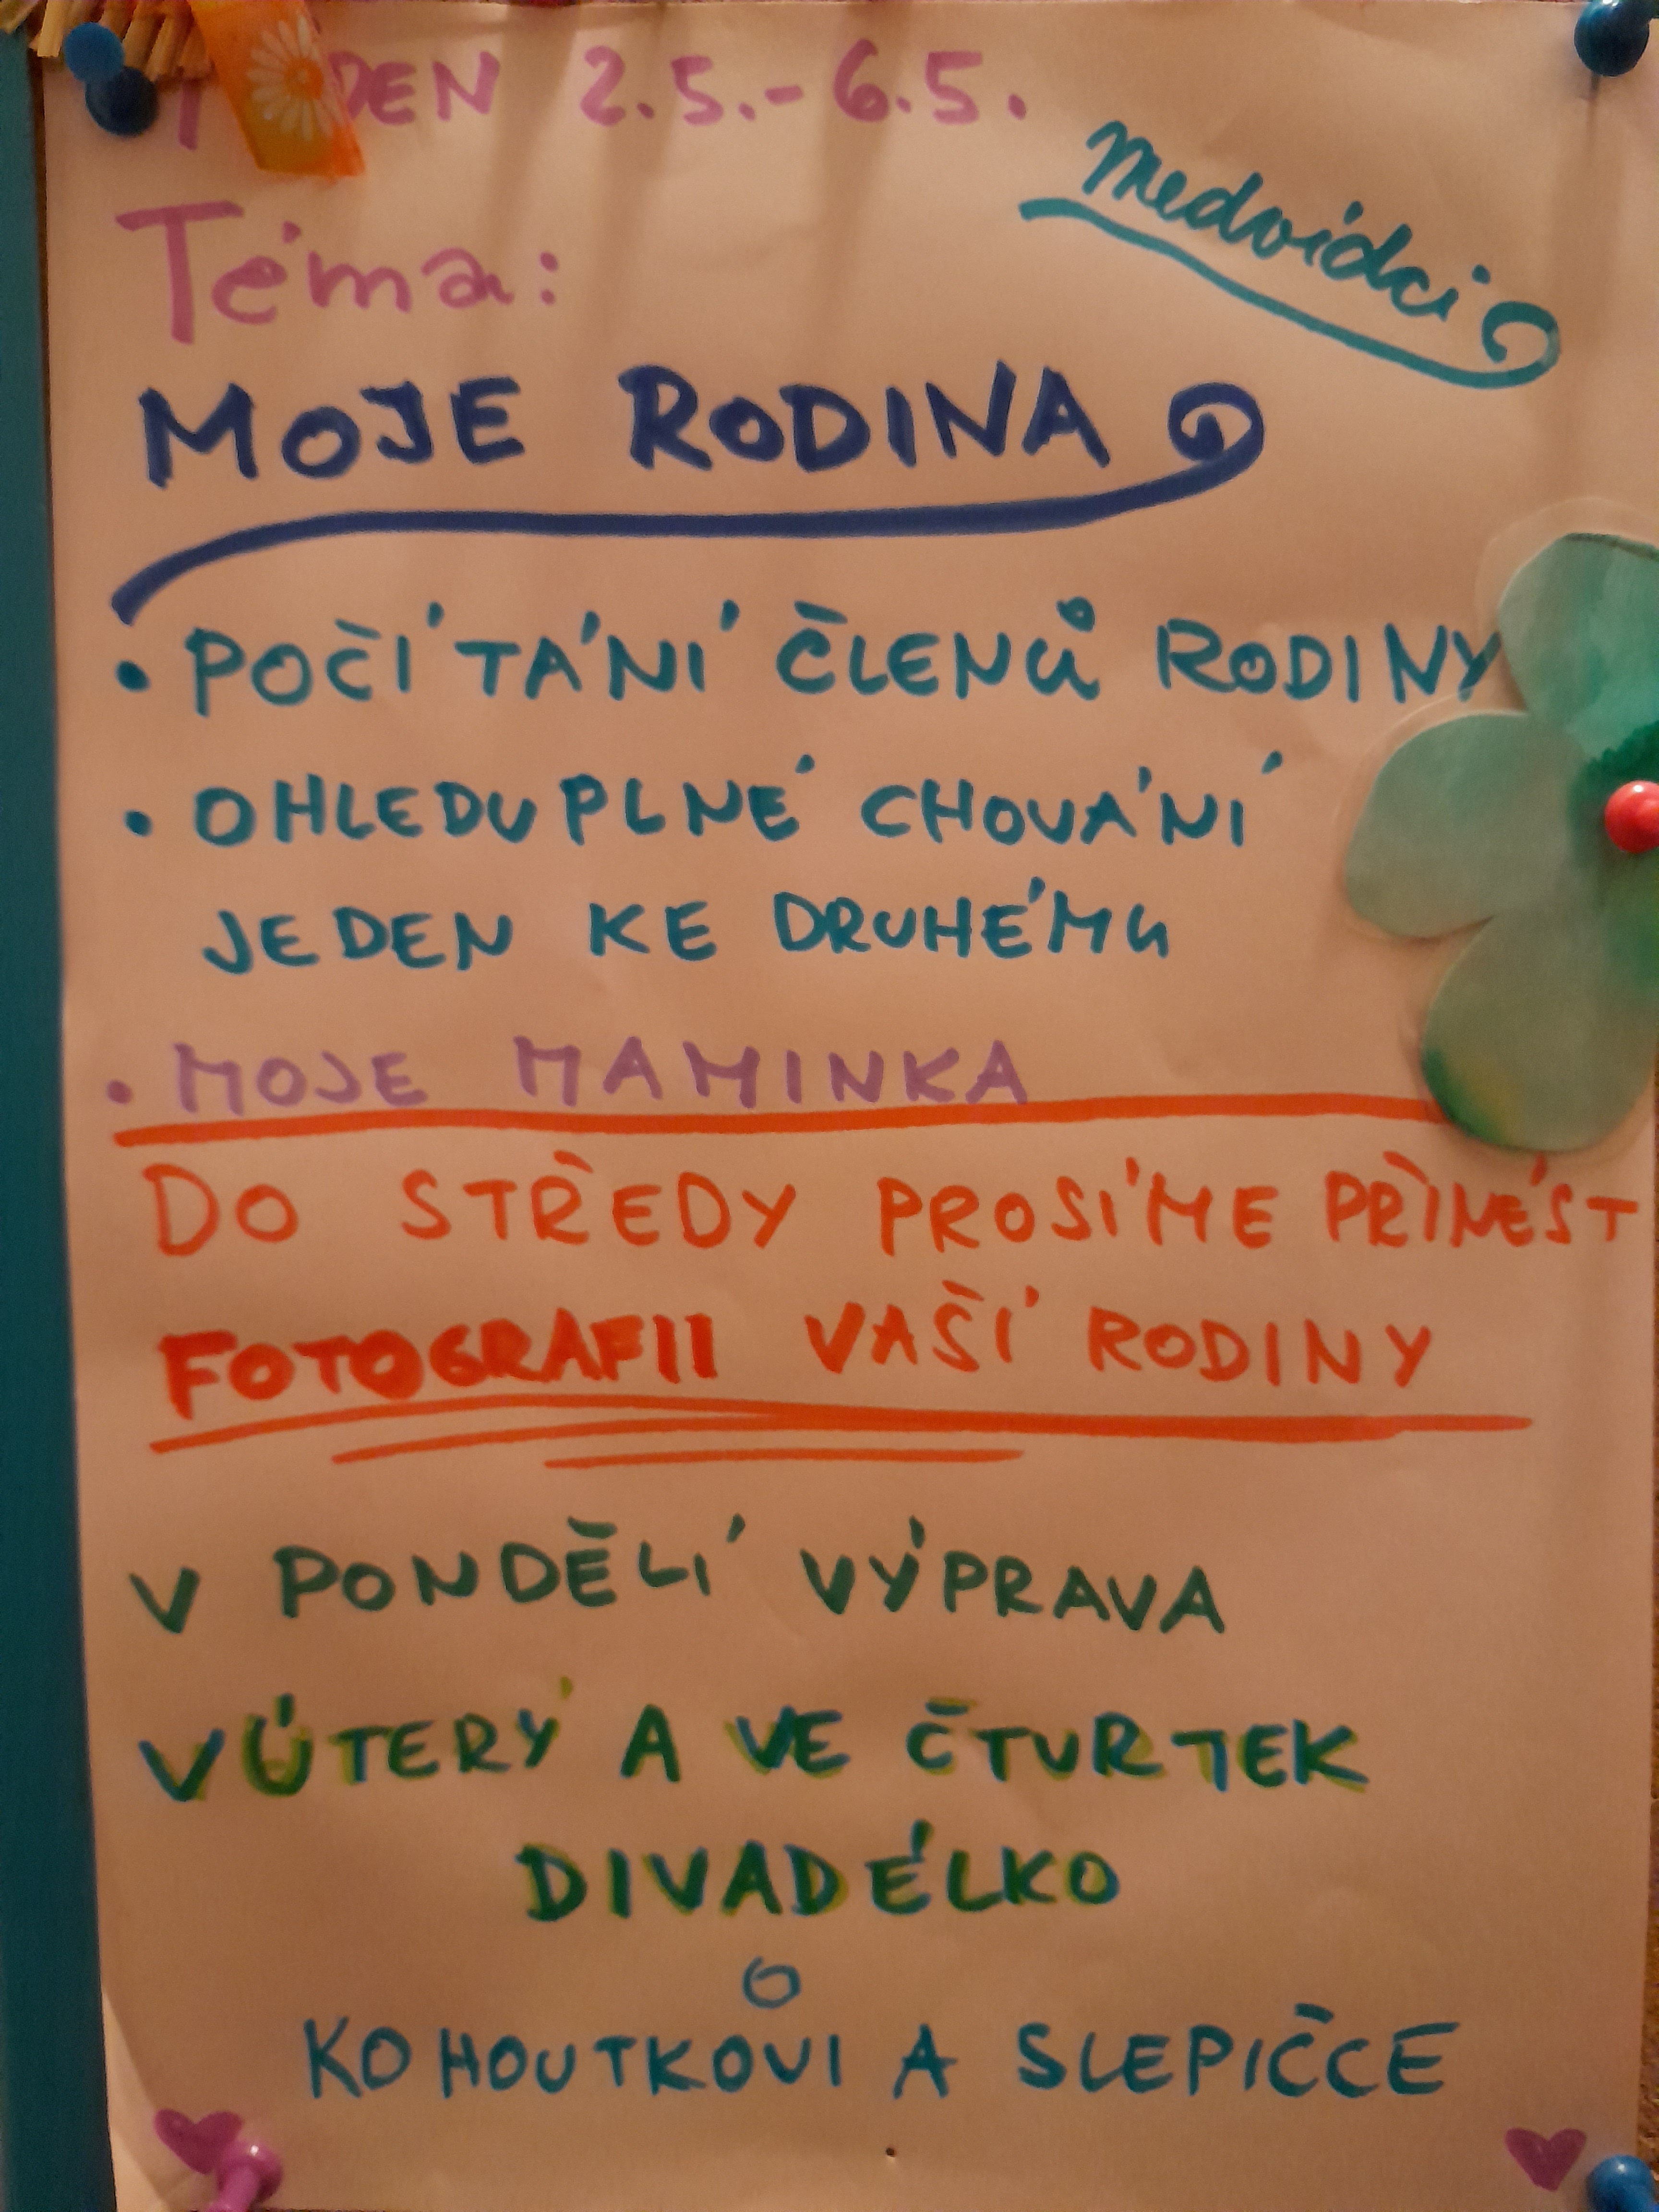 DEN 2.5.-6.5.
medvídci
Téma:
MOJE RODINA
• POČÍTÁNÍ ČLENŮ RODINY
• OHLEDUPLNÉ CHOVÁNÍ
JEDEN KE DRUHÉMU
• MOJE MAMINKA
DO STŘEDY PROSÍME PŘINÉST
FOTOGRAFII VAŠÍ RODINY
V PONDĚLÍ VÝPRAVA
V ÚTERÝ A VE ČTVRTEK
DIVADÉLKO
O
KOHOUTKOVI A SLEPIČCE